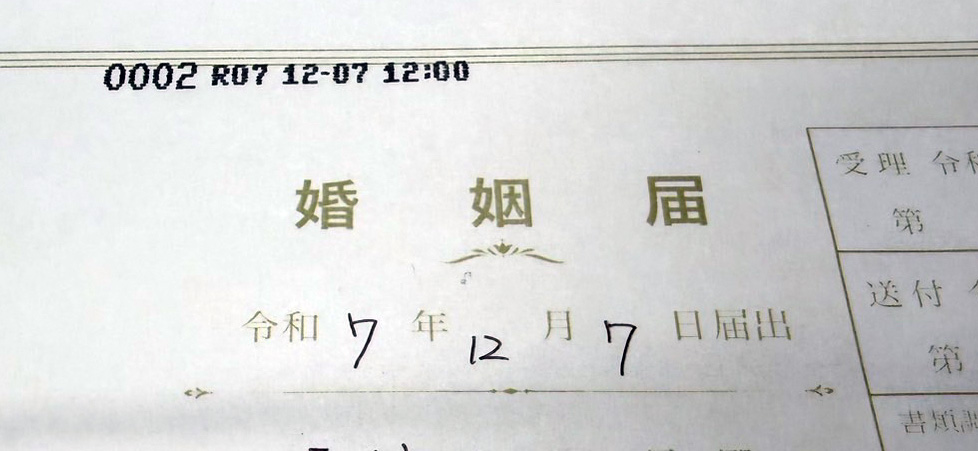 0002 R07 12-07 12:00
婚姻届
令和7年12月7日届出
受理 令和
第
送付
第
書類調